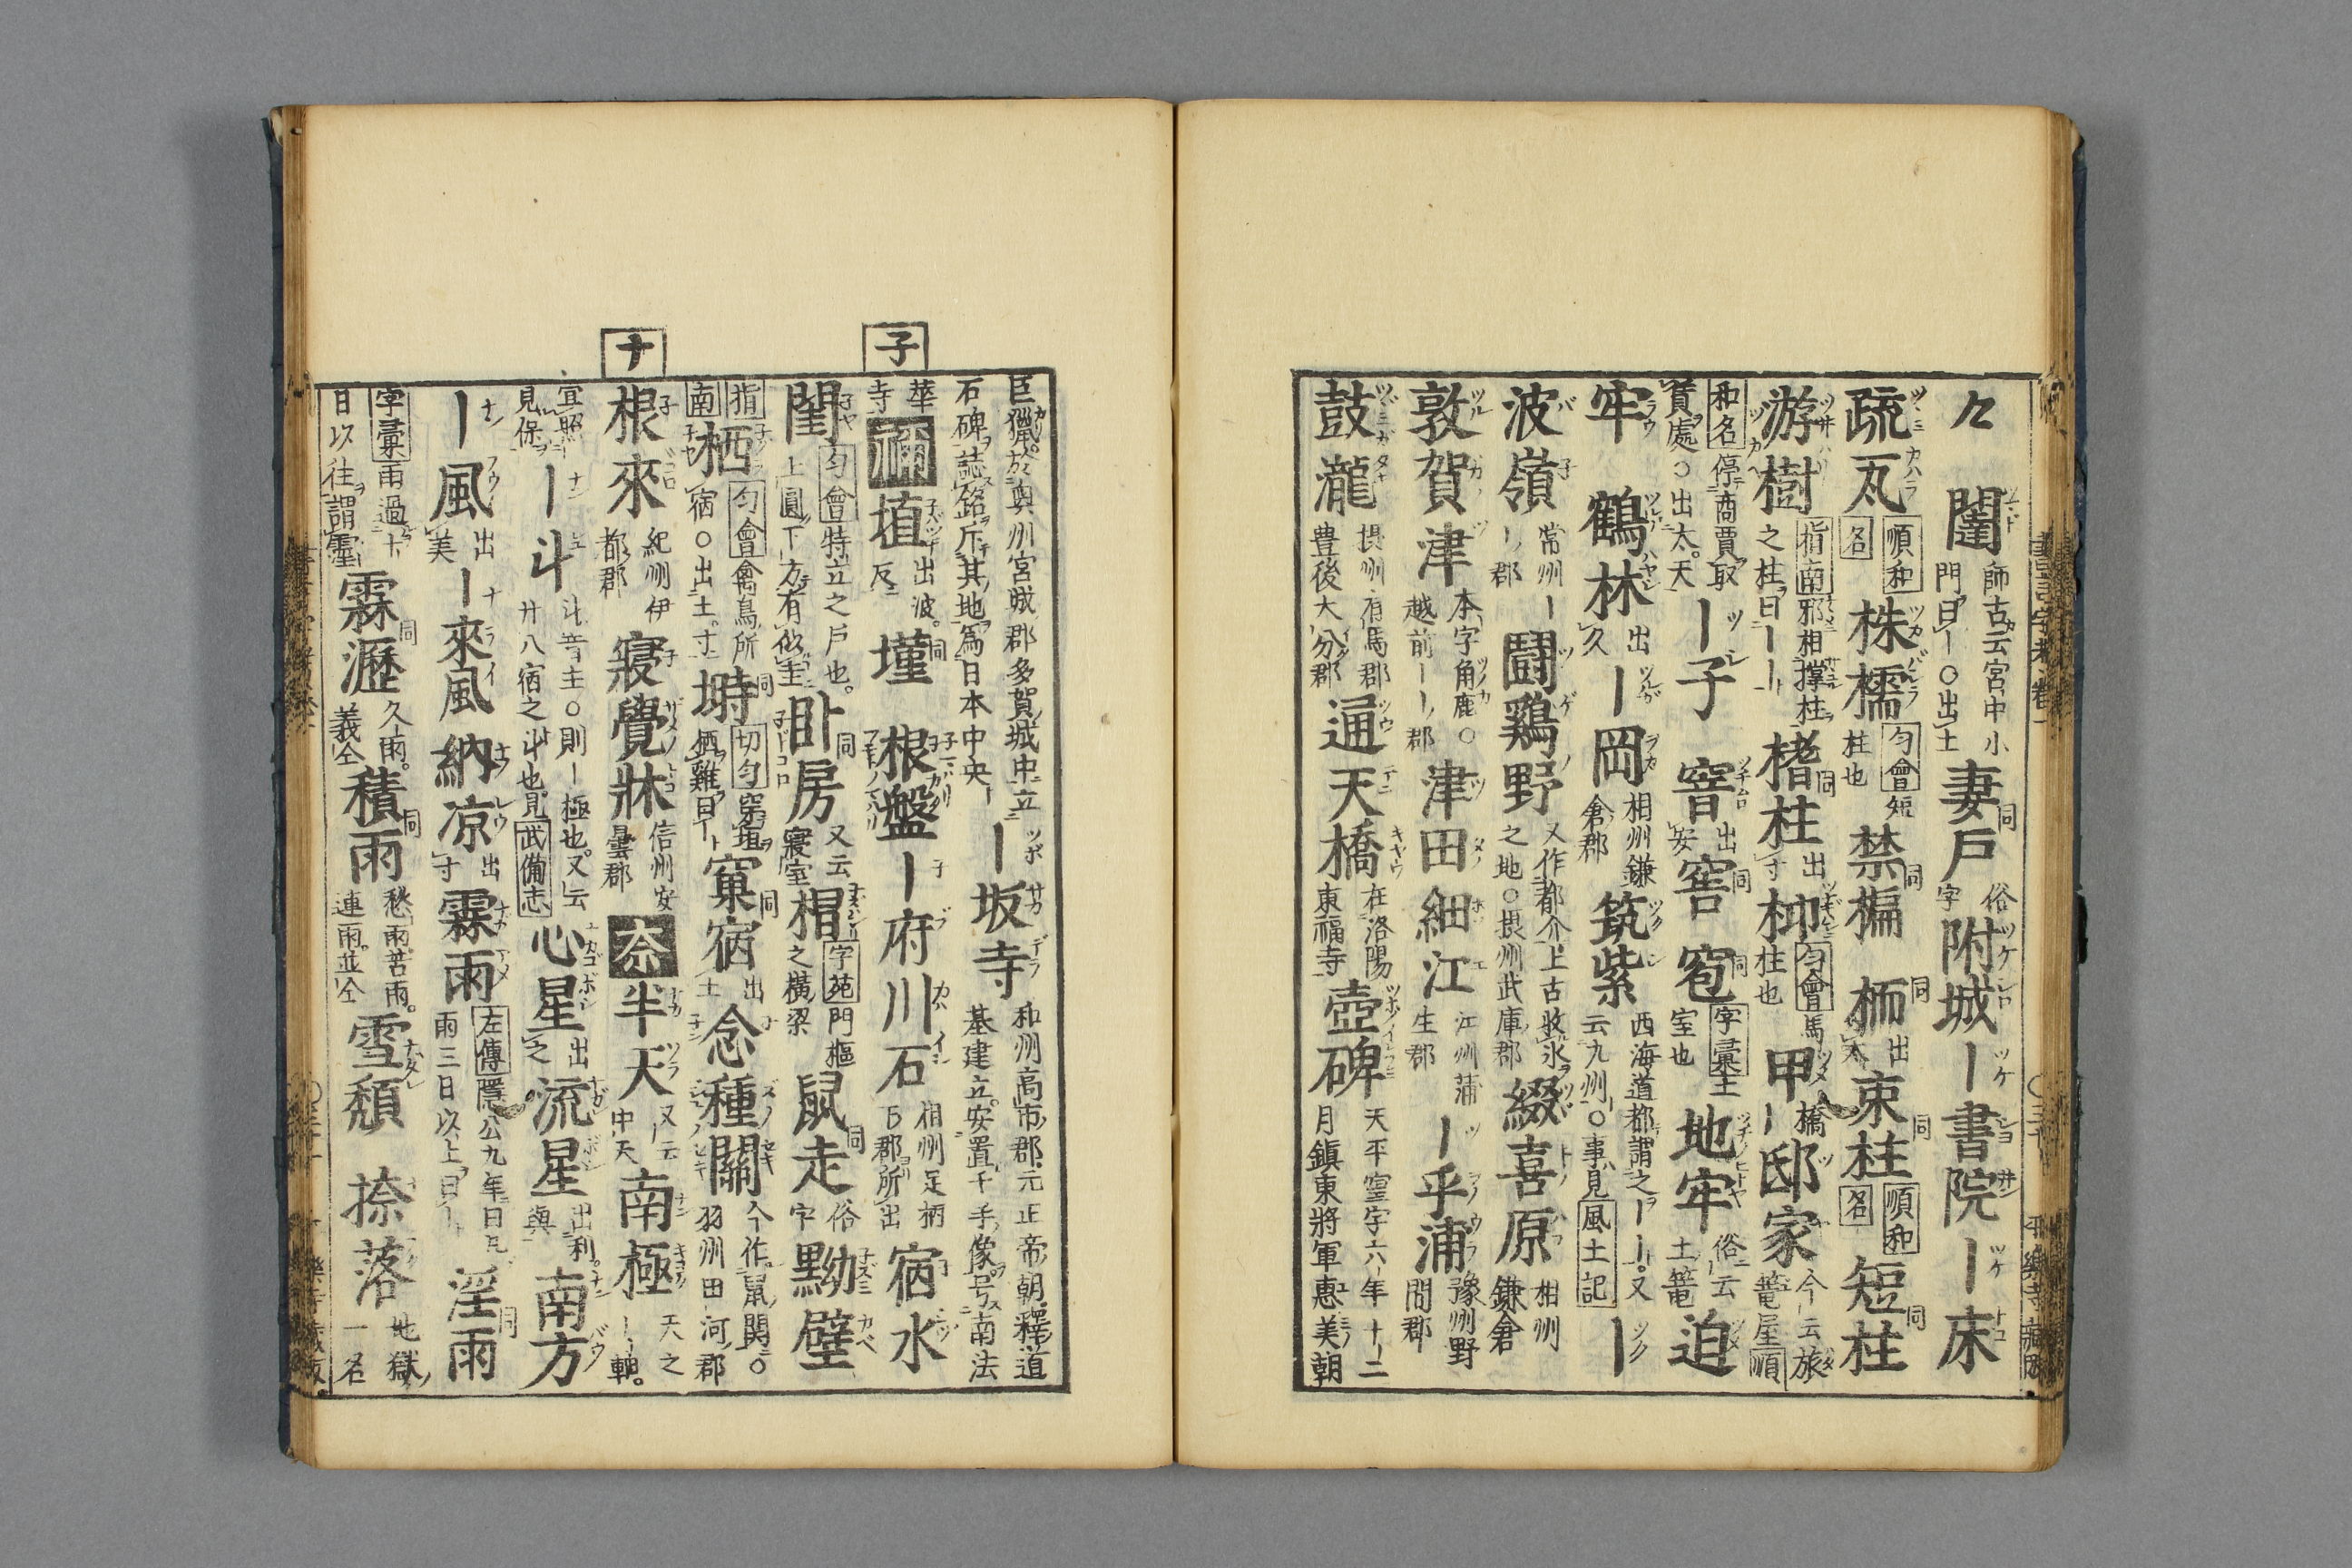 々 闥 師古云宮中小門曰ー○出土 妻戸 同 俗字 附城 ー書院 ー床
疏瓦 順和名 株檽 匀會 短柱也 禁楄 同 栭 同 出太 束柱 同 順和名 短柱 同
游樹 指南 邪相撑柱之柱曰ーー 楮柱 同 出寸 枊 匀會 馬柱也 甲ー 橋 邸家 今云旅篭屋 順
和名 停商賈取賃處○出太。天 ー子 窨 出安 窖 同 窇 同 字彙 土室也 地牢 俗云土篭 迫
牢 鶴林 出久 ー岡 相州鎌倉郡 筑紫 西海道都謂之ーー。又云九州。○事見 風土記 ー
波嶺 常州ー郡 鬪鷄野 又作都介上古收氷之地○摂州武庫郡 綴喜原 相州鎌倉
敦賀津 本字角鹿○越前ーー郡 津田細江 江州蒲生郡 ー乎浦 豫州野間郡
鼓瀧 摂州有馬郡豊後大分郡 通天橋 在洛陽東福寺 壺碑 天平寳字六年十二月鎮東將軍惠美朝
巨獵於奥州宮城郡多賀城中立石碑誌銘斥其地為日本中央ー ー坂寺 和州高市郡元正帝朝釋道基建立。安置千手像号南法
華寺 禰 埴 出波。反 墐 同 根盤 ー府川石 相州足柄下郡所出 宿水
子
閨 匀會 特立之戸也。上圓下方有似圭 卧房 同 又云寢室 楣 字苑 門樞之橫梁 鼠走 同 俗字 黝壁
指南 栖 匀會 禽鳥所宿○出土。寸 塒 同 切匀 穿垣栖雞曰ー 窠宿 同 出土 念種關 今作鼠関○羽州田河郡
ナ
根來 紀州伊都郡 寢覺牀 信州安曇郡 奈 半天 又云中天 南極 天之ー軸。
宜照見保 ー斗 斗音主○則ー極也。又云廿八宿之斗也。見 武備志 心星 出之 流星 出利。與 南方
ー風 出美 ー來風 納凉 出寸 霖雨 左傳 隱公九年曰凡雨三日以上曰ー 淫雨 同
字彙 雨過十日以往謂霪 霖瀝 同 久雨。義仝 積雨 同 愁雨苦雨。連雨。並仝 雪頽 捺落 地獄一名